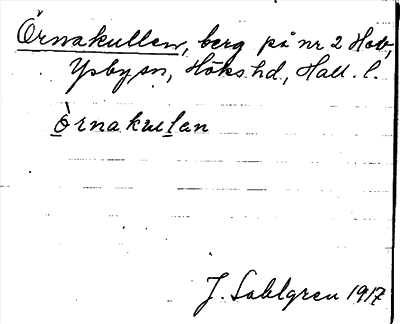 Örnakullen, berg på nr 2 Hov,
Ysby sn, Höks hd, Hall. l.
Òrnakullan
J. Sahlgren 1917